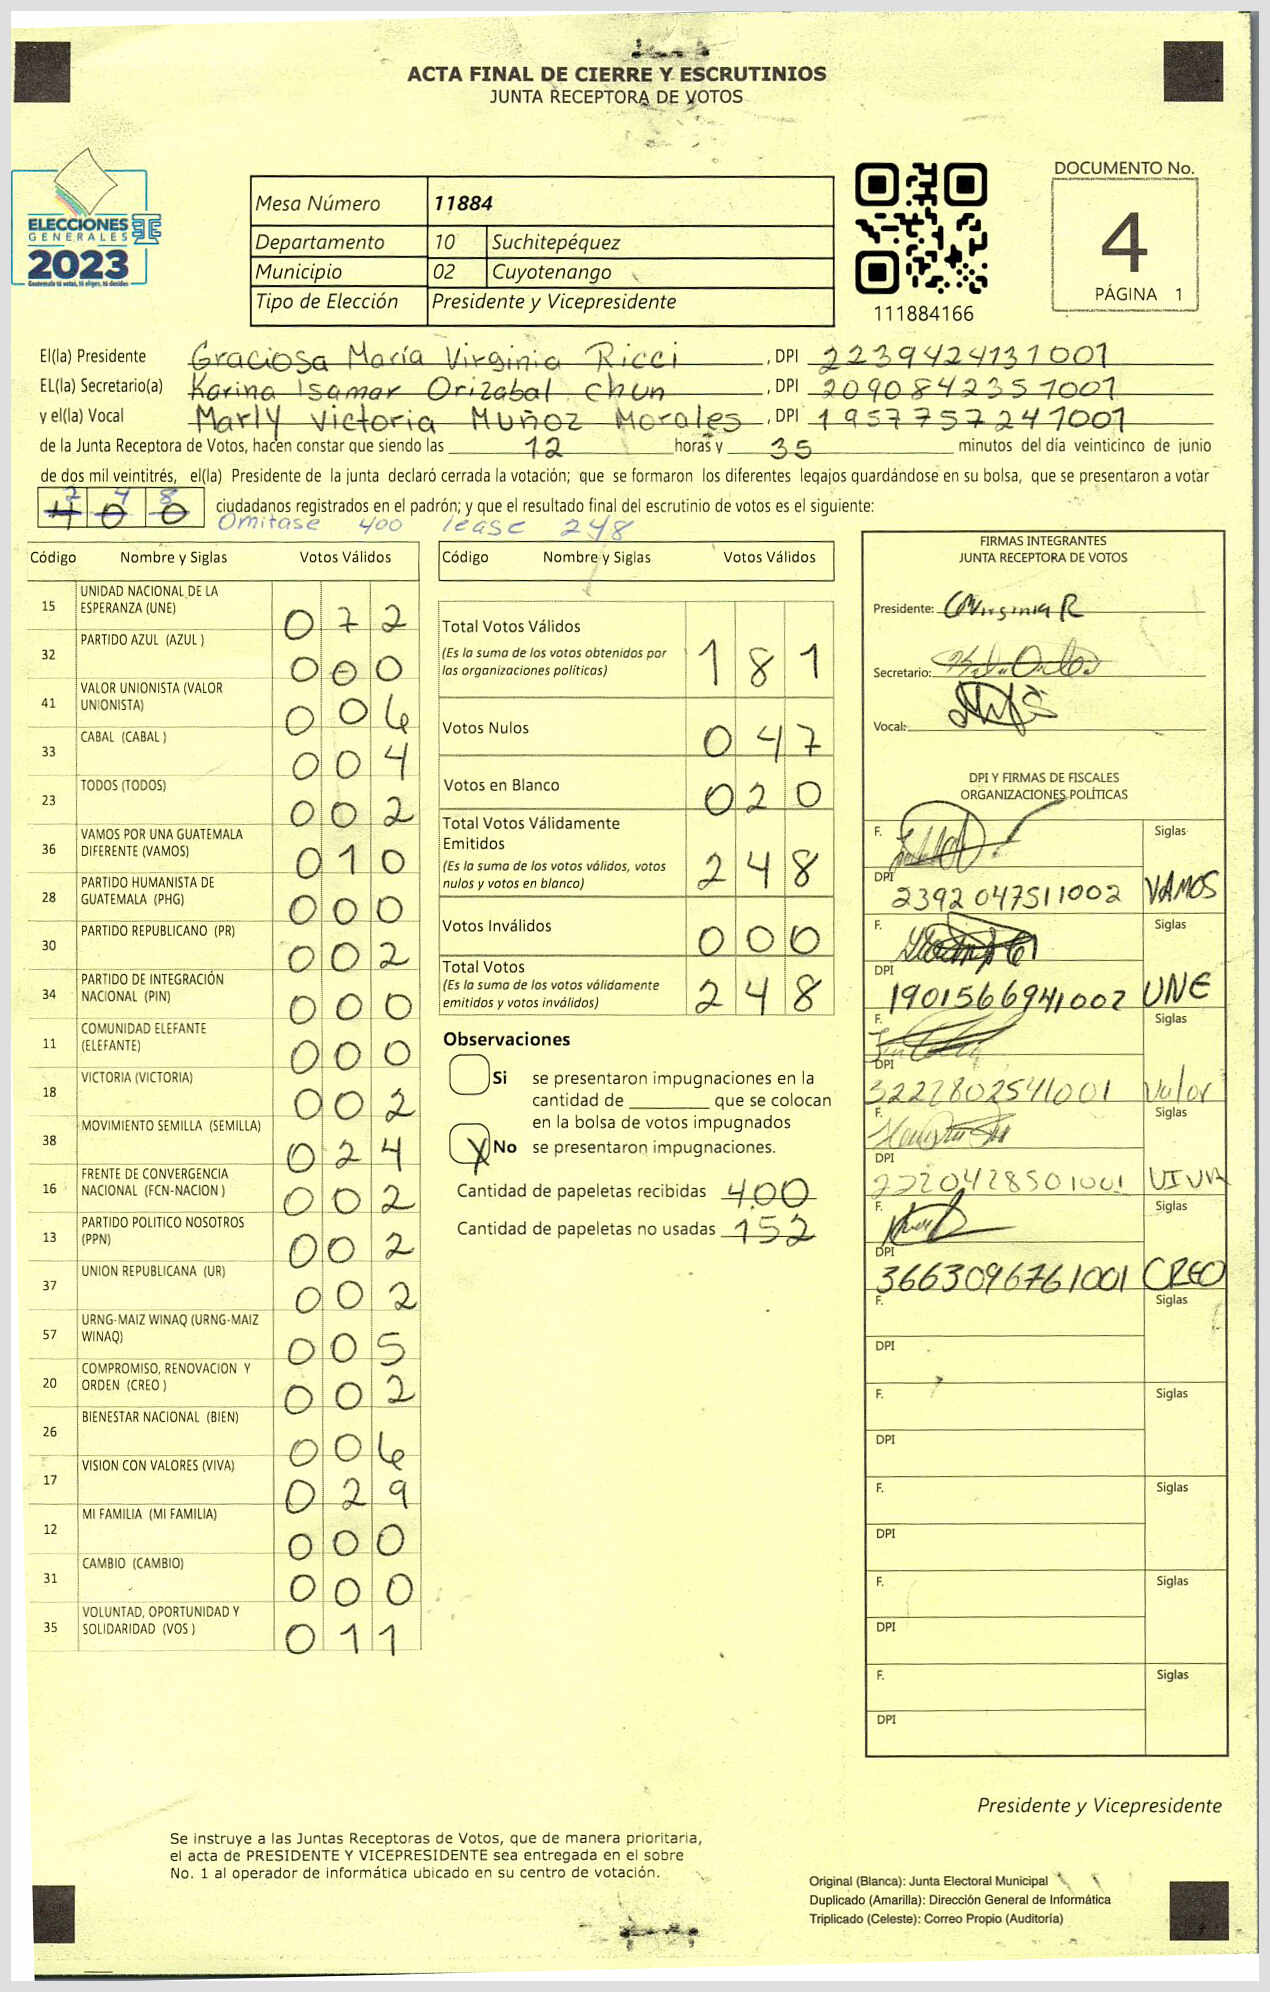 ACTA FINAL DE CIERRE Y ESCRUTINIOS
JUNTA RECEPTORA DE VOTOS
ELECCIONES
GENERALES
2023
Guatemala tú votas, tú eliges, tú decides
Mesa Número 11884
Departamento 10 Suchitepéquez
Municipio 02 Cuyotenango
Tipo de Elección Presidente y Vicepresidente
111884166
DOCUMENTO No.
4
PÁGINA 1
El(la) Presidente Graciosa María Virginia Ricci, DPI 2239424131001
EL(la) Secretario(a) Karina Isamar Orizabal chun, DPI 2090842351001
y el(la) Vocal Marly Victoria Muñoz Morales, DPI 1957757241001
de la Junta Receptora de Votos, hacen constar que siendo las 12 horas y 35 minutos del día veinticinco de junio
de dos mil veintitrés, el(la) Presidente de la junta declaró cerrada la votación; que se formaron los diferentes legajos guardándose en su bolsa, que se presentaron a votar
400 248 ciudadanos registrados en el padrón; y que el resultado final del escrutinio de votos es el siguiente:
Omitase 400 lease 248
Código Nombre y Siglas Votos Válidos
15 UNIDAD NACIONAL DE LA ESPERANZA (UNE) 072
32 PARTIDO AZUL (AZUL ) 000
41 VALOR UNIONISTA (VALOR UNIONISTA) 006
33 CABAL (CABAL ) 004
23 TODOS (TODOS) 002
36 VAMOS POR UNA GUATEMALA DIFERENTE (VAMOS) 010
28 PARTIDO HUMANISTA DE GUATEMALA (PHG) 000
30 PARTIDO REPUBLICANO (PR) 002
34 PARTIDO DE INTEGRACIÓN NACIONAL (PIN) 000
11 COMUNIDAD ELEFANTE (ELEFANTE) 000
18 VICTORIA (VICTORIA) 002
38 MOVIMIENTO SEMILLA (SEMILLA) 024
16 FRENTE DE CONVERGENCIA NACIONAL (FCN-NACION ) 002
13 PARTIDO POLITICO NOSOTROS (PPN) 002
37 UNION REPUBLICANA (UR) 002
57 URNG-MAIZ WINAQ (URNG-MAIZ WINAQ) 005
20 COMPROMISO, RENOVACION Y ORDEN (CREO ) 002
26 BIENESTAR NACIONAL (BIEN) 006
17 VISION CON VALORES (VIVA) 029
12 MI FAMILIA (MI FAMILIA) 000
31 CAMBIO (CAMBIO) 000
35 VOLUNTAD, OPORTUNIDAD Y SOLIDARIDAD (VOS ) 011
Código Nombre y Siglas Votos Válidos
Total Votos Válidos
(Es la suma de los votos obtenidos por las organizaciones políticas) 181
Votos Nulos 047
Votos en Blanco 020
Total Votos Válidamente Emitidos
(Es la suma de los votos válidos, votos nulos y votos en blanco) 248
Votos Inválidos 000
Total Votos
(Es la suma de los votos válidamente emitidos y votos inválidos) 248
Observaciones
Si se presentaron impugnaciones en la
cantidad de ________ que se colocan
en la bolsa de votos impugnados
X No se presentaron impugnaciones.
Cantidad de papeletas recibidas 400
Cantidad de papeletas no usadas 152
FIRMAS INTEGRANTES
JUNTA RECEPTORA DE VOTOS
Presidente: Virginia R
Secretario:
Vocal:
DPI Y FIRMAS DE FISCALES
ORGANIZACIONES POLÍTICAS
F. Siglas
DPI 2392047511002 VAMOS
F. Siglas
DPI 1901566941002 UNE
F. Siglas
DPI 3222802541001 Valor
F. Siglas
DPI 2220428501001 VIVA
F. Siglas
DPI 3663096761001 CREO
F. Siglas
DPI
F. Siglas
DPI
F. Siglas
DPI
F. Siglas
DPI
F. Siglas
DPI
Presidente y Vicepresidente
Se instruye a las Juntas Receptoras de Votos, que de manera prioritaria,
el acta de PRESIDENTE Y VICEPRESIDENTE sea entregada en el sobre
No. 1 al operador de informática ubicado en su centro de votación.
Original (Blanca): Junta Electoral Municipal
Duplicado (Amarilla): Dirección General de Informática
Triplicado (Celeste): Correo Propio (Auditoría)